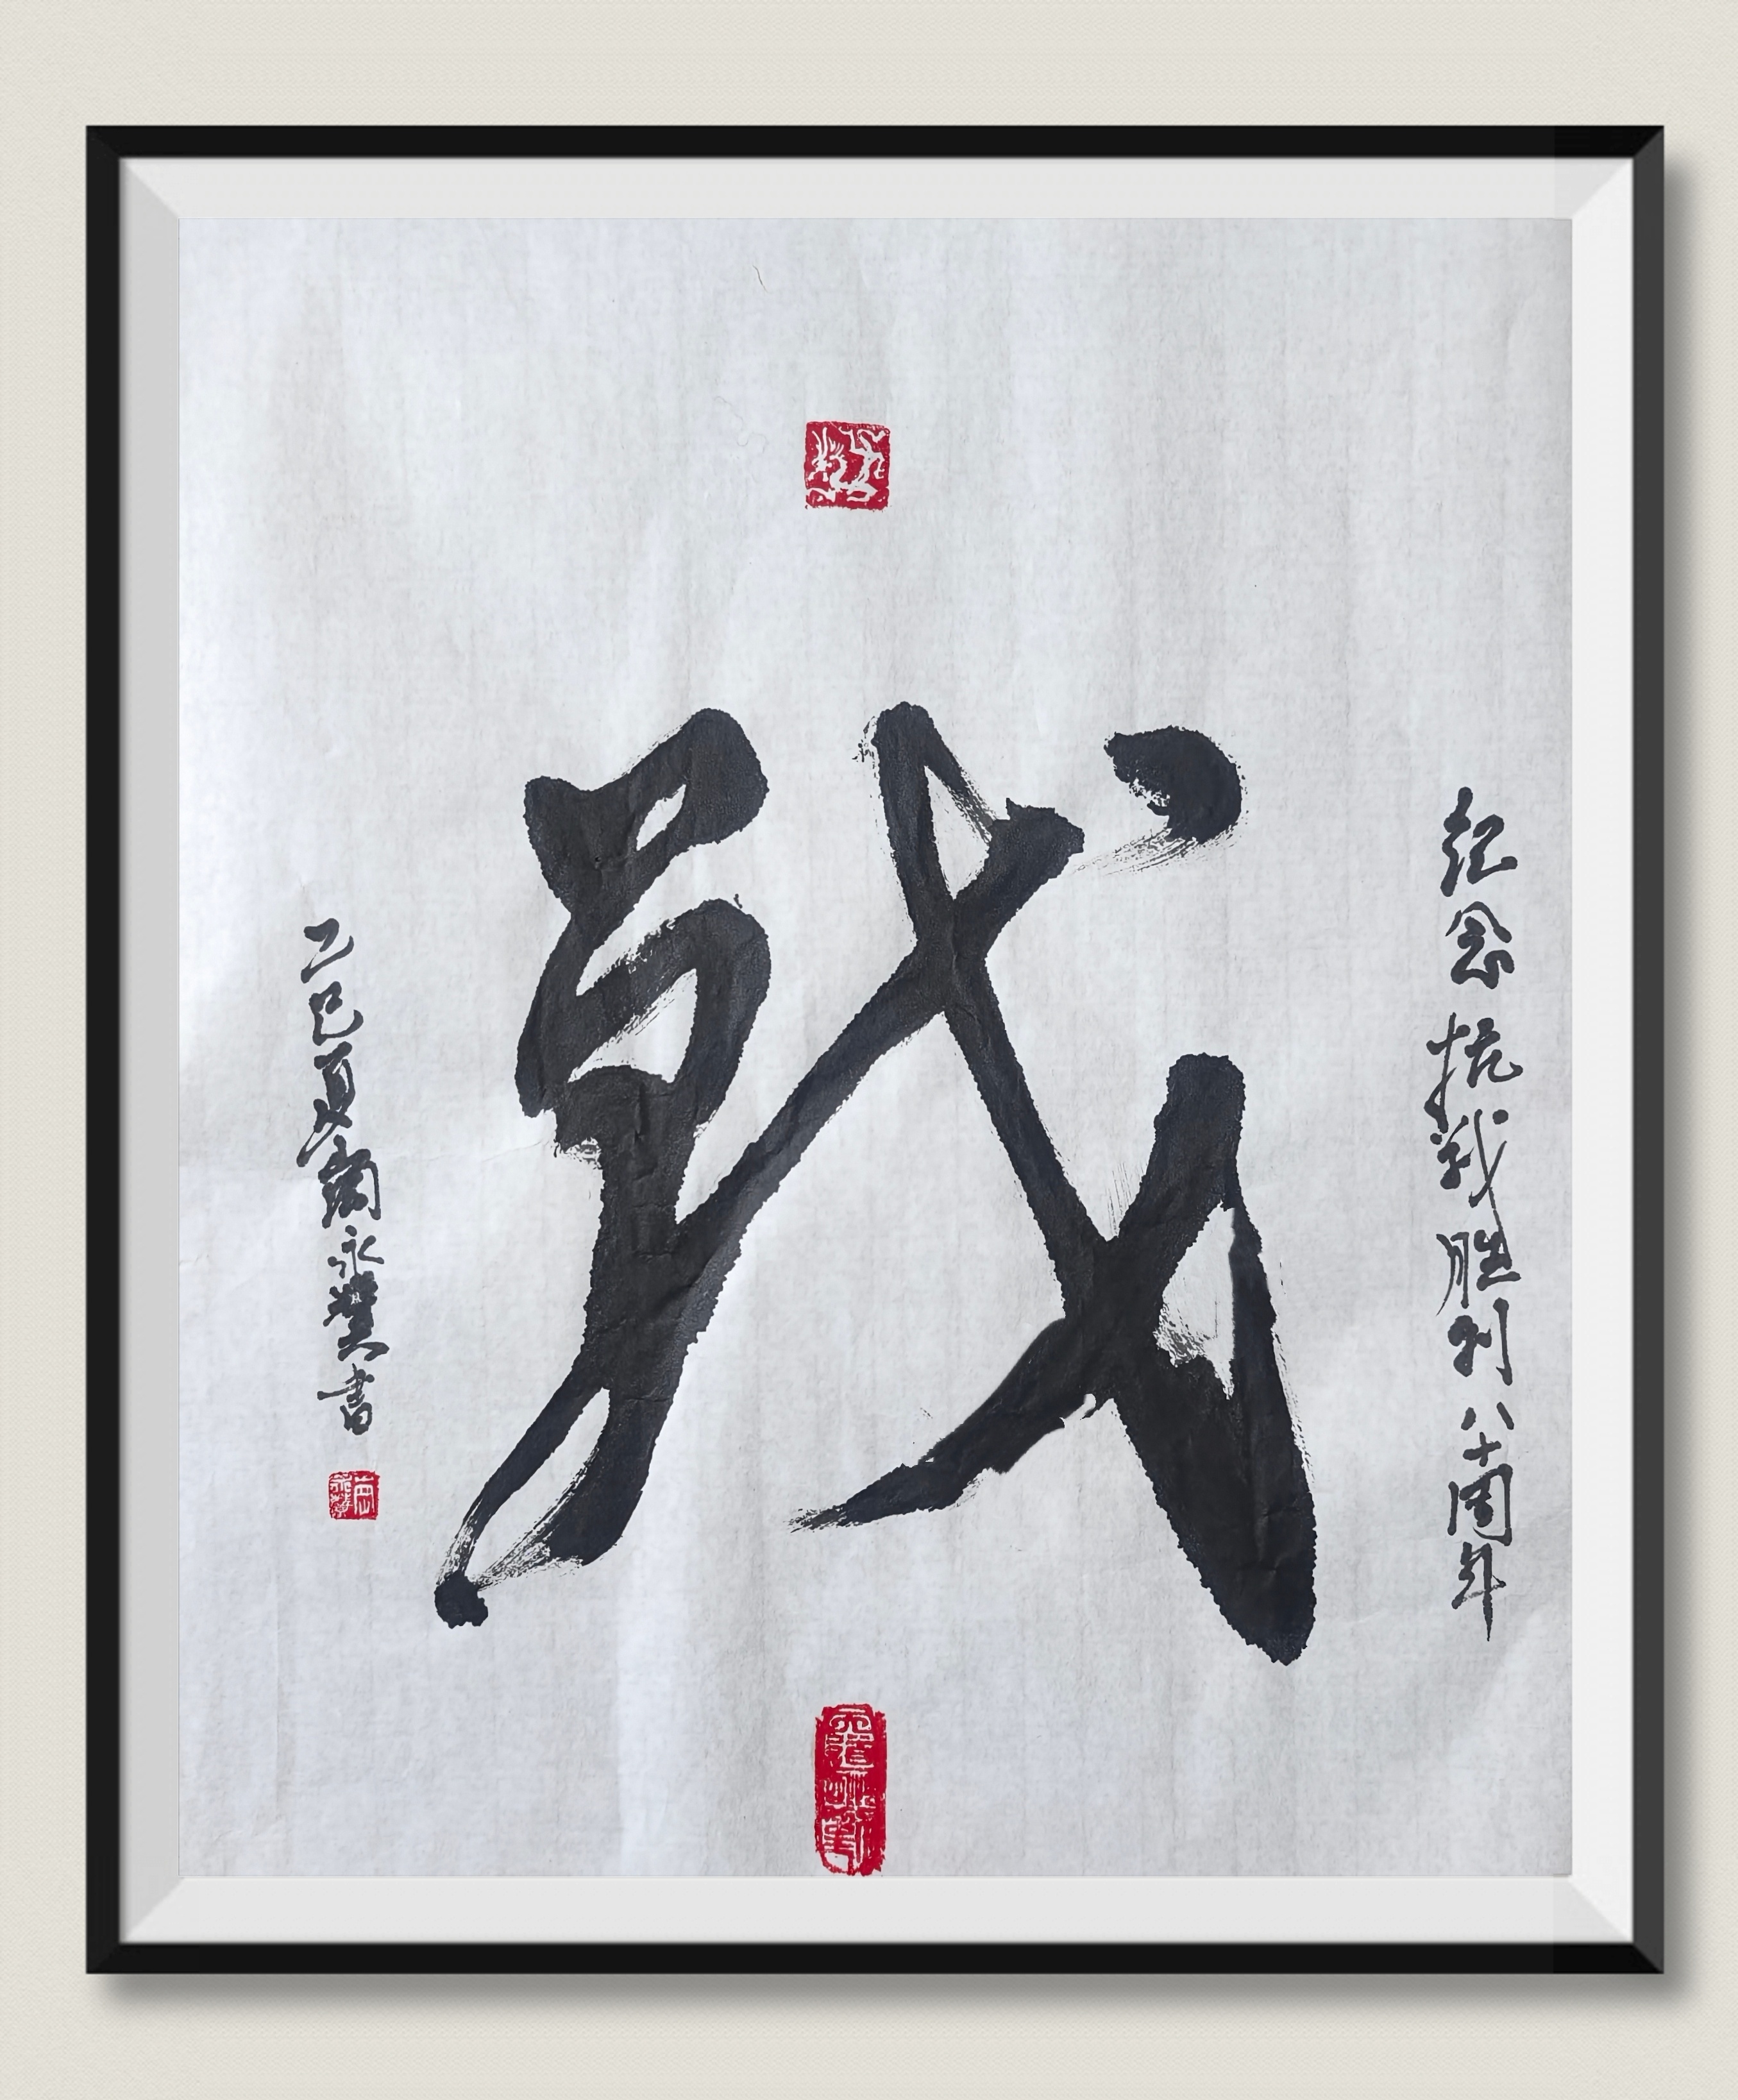 纪念抗戰胜利八十周年
戰
乙巳夏 永 書